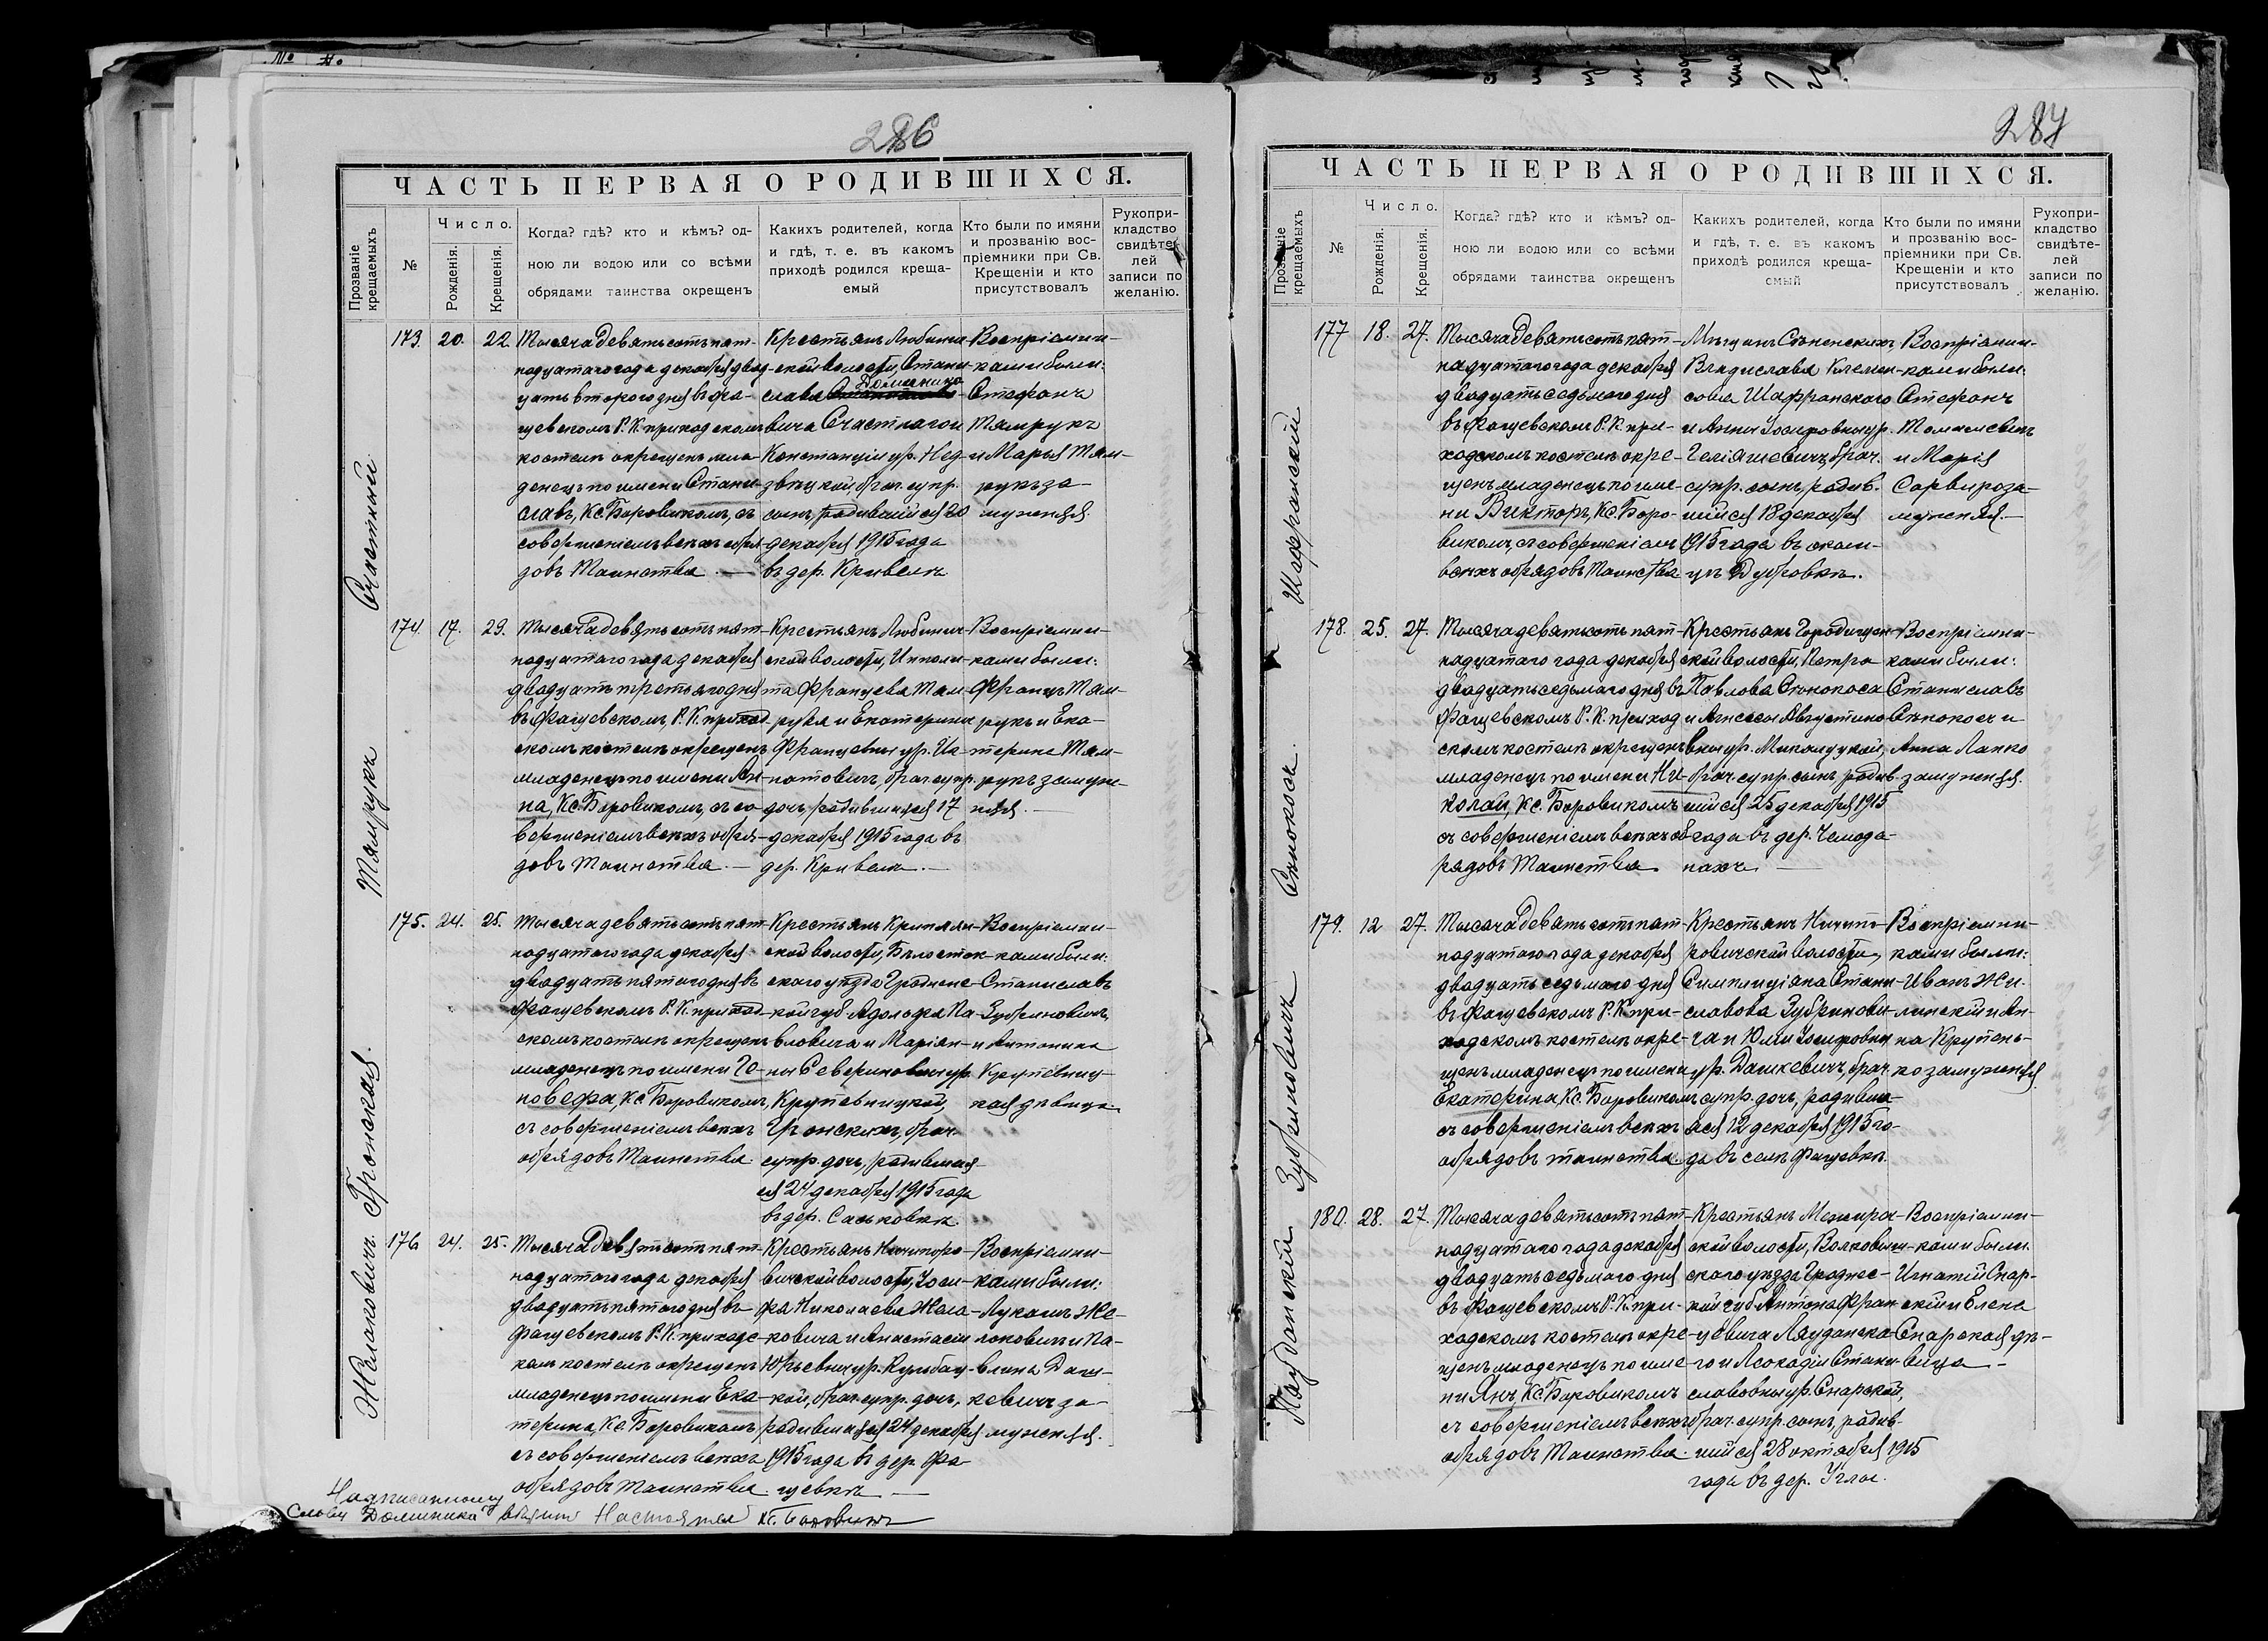 286
ЧАСТЬ ПЕРВАЯ О РОДИВШИХСЯ.
Прозваніе крещаемыхъ
№
Число.
Рожденія.
Крещенія.
Когда? гдѣ? кто и кѣмъ? од-
ною ли водою или со всѣми
обрядами таинства окрещенъ
Какихъ родителей, когда
и гдѣ, т. е. въ какомъ
приходѣ родился креща-
емый
Кто были по имяни
и прозванію вос-
пріемники при Св.
Крещеніи и кто
присутствовалъ
Рукопри-
кладство
свидѣте-
лей
записи по
желанію.
Счастный
173. 20. 22.
Тысяча девятьсотъ пят-
надцатаго года декабря двад-
цать второго дня въ Фа-
щевскомъ Р. К. приходскомъ
костелѣ окрещенъ мла-
денецъ по имени Стани-
славъ, Кс. Боровикомъ, съ
совершеніемъ всѣхъ обря-
довъ Таинства. —
Крестьянъ Любинич-
ской волости, Стани-
слава Доминико-
вича Счастнаго и
Констанціи ур. Нед-
звѣцкой, брач. супр.
сынъ, родившійся 20
декабря 1915 года
въ дер. Кривеляхъ
Воспріемни-
ками были:
Стефанъ
Тамрукъ
и Марья Там-
рукъ за-
мужняя.
Тамрукъ
174. 17. 23.
Тысяча девятьсотъ пят-
надцатаго года декабря
двадцать третьяго дня
въ Фащевскомъ, Р. К. приход-
скомъ костелѣ окрещенъ
младенецъ по имени Ан-
на, Кс. Боровикомъ, съ со-
вершеніемъ всѣхъ обря-
довъ Таинства. —
Крестьянъ Любинич-
ской волости, Иппoли-
та Францева Там-
рука и Екатерины
Францевны ур. Иг-
натовичъ, брач. супр.
дочь, родившаяся 17
декабря 1915 года въ
дер. Кривели. —
Воспріемни-
ками были:
Францъ Там-
рукъ и Ека-
терина Там-
рукъ замуж-
няя. —
Гронская.
175. 24. 25.
Тысяча девятьсотъ пят-
надцатаго года декабря
двадцать пятаго дня въ
Фащевскомъ Р. К. приход-
скомъ костелѣ окрещенъ
младенецъ по имени Ге-
новефа, Кс. Боровикомъ,
съ совершеніемъ всѣхъ
обрядовъ Таинства.
Крестьянъ Крыплян-
ской волости, Бѣлосток-
скаго уѣзда Гроднен-
ской губ Адольфа Па-
вловича и Маріян-
ны Севериновны ур.
Крупевницкой,
Гронскихъ, брач.
супр. дочь, родившая-
ся 24 декабря 1915 года
въ дер. Саськовкѣ.
Воспріемни-
ками были:
Станиславъ
Зубриновичъ,
и Антонина
Крупевниц-
кая дѣвица
Желаковичъ
176 24. 25.
Тысяча девятьсотъ пят-
надцатаго года декабря
двадцать пятаго дня въ
Фащевскомъ Р. К. приходс-
комъ костелѣ окрещенъ
младенецъ по имени Ека-
терина, Кс. Боровикомъ,
съ совершеніемъ всѣхъ
обрядовъ Таинства.
Крестьянъ Ничипоро-
вичской волости, Іоси-
фа Николаева Жела-
ковича и Анастасіи
Юрьевны ур. Кульбац-
кой, брач. супр. дочь,
родившаяся 24 декабря
1915 года въ дер. Фа-
щевкѣ —
Воспріемни-
ками были:
Лукашъ Же-
лаковичъ и Па-
влина Даш-
кевичъ за-
мужняя.
Надписанному
слову Доминика вѣрить Настоятель Кс. Боровикъ
287
ЧАСТЬ ПЕРВАЯ О РОДИВШИХСЯ.
Прозваніе крещаемыхъ
№
Число.
Рожденія.
Крещенія.
Когда? гдѣ? кто и кѣмъ? од-
ною ли водою или со всѣми
обрядами таинства окрещенъ
Какихъ родителей, когда
и гдѣ, т. е. въ какомъ
приходѣ родился креща-
емый
Кто были по имяни
и прозванію вос-
пріемники при Св.
Крещеніи и кто
присутствовалъ
Рукопри-
кладство
свидѣте-
лей
записи по
желанію.
Шафранскій
177 18. 27.
Тысяча девятьсотъ пят-
надцатаго года декабря
двадцать седьмаго дня
въ Фащевскомъ Р. К. при-
ходскомъ костелѣ окре-
щенъ младенецъ по име-
ни Викторъ, Кс. Боро-
викомъ, съ совершеніемъ
всѣхъ обрядовъ Таинства
Мѣщанъ Сѣнненскихъ,
Владислава Климен-
совa Шафранского
и Анны Іосифовны ур.
Геліяшевичъ, брач.
супр. сынъ, родив-
шійся 18 декабря
1915 года въ околи-
цѣ Дубровкѣ.
Воспріемни-
ками были:
Стефанъ
Томашевичъ
и Марія
Сарвиро за-
мужняя. —
Сѣнокосъ.
178. 25. 27.
Тысяча девятьсотъ пят-
надцатаго года декабря
двадцать седьмаго дня въ
Фащевскомъ Р. К. приход-
скомъ костелѣ окрещенъ
младенецъ по имени Ни-
колай, Кс. Боровикомъ
съ совершеніемъ всѣхъ об-
рядовъ Таинства
Крестьянъ Городищен-
ской волости, Петра
Павлова Сѣнокоса
и Агнессы Августино-
вны ур. Микалуцкой,
брач. супр. сынъ, родив-
шійся 25 декабря 1915
года въ дер. Чемода-
нахъ. —
Воспріемни-
ками были:
Станиславъ
Сѣнокосъ и
Анна Лапко
замужняя.
Зубриновичъ
179. 12 27.
Тысяча девятьсотъ пят-
надцатаго года декабря
двадцать седьмаго дня
въ Фащевскомъ Р. К. при-
ходскомъ костелѣ окре-
щенъ младенецъ по имени
Екатерина, Кс. Боровикомъ
съ совершеніемъ всѣхъ
обрядовъ таинства.
Крестьянъ Ничипо-
ровичской волости,
Симплиціяна Стани-
славова Зубринови-
ча и Юліи Іосифовны
ур. Дашкевичъ, брач.
супр. дочь, родивша-
яся 12 декабря 1915 го-
да въ селѣ Фащевкѣ.
Воспріемни-
ками были:
Иванъ Жи-
линскій и Ан-
на Крупень-
ко замужняя
Ляуданскій
180. 28. 27.
Тысяча девятьсотъ пят-
надцатаго года декабря
двадцать седьмаго дня
въ Фащевскомъ Р. К. при-
ходскомъ костелѣ окре-
щенъ младенецъ по име-
ни Янъ, Кс. Боровикомъ
съ совершеніемъ всѣхъ
обрядовъ Таинства.
Крестьянъ Межирѣч-
ской волости, Волковыш-
скаго уѣзда Гроднес-
кой губ Антона Фран-
цовича Ляуданска-
го и Леокадіи Стани-
славовны ур. Снарской,
брач. супр. сынъ, родив-
шійся 28 октября 1915
года въ дер. Углы.
Воспріемни-
ками были:
Игнатій Снар-
скій и Елена
Снарская дѣ-
вица —